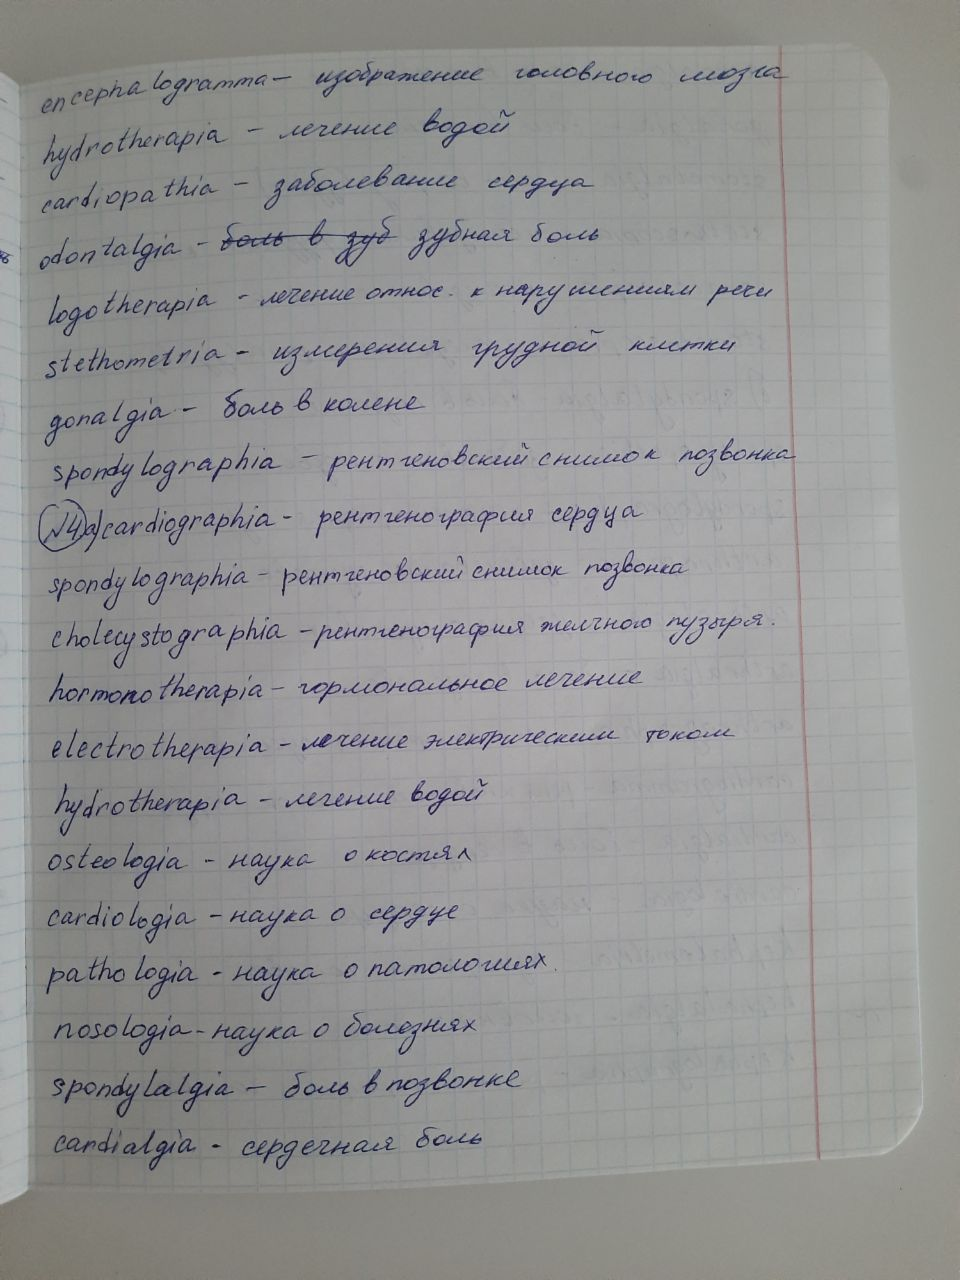 encephalogramma – изображение головного мозга
hydrotherapia – лечение водой
cardiopathia – заболевание сердца
odontalgia – боль в зуб зубная боль
logotherapia – лечение относ. к нарушениям речи
stethometria – измерения грудной клетки
gonalgia – боль в колене
spondylographia – рентгеновский снимок позвонка
√4 а) cardiographia – рентгенография сердца
spondylographia – рентгеновский снимок позвонка
cholecystographia – рентгенография желчного пузыря.
hormonotherapia – гормональное лечение
electrotherapia – лечение электрическим током
hydrotherapia – лечение водой
osteologia – наука о костях
cardiologia – наука о сердце
pathologia – наука о патологиях.
nosologia – наука о болезнях
spondylalgia – боль в позвонке
cardialgia – сердечная боль